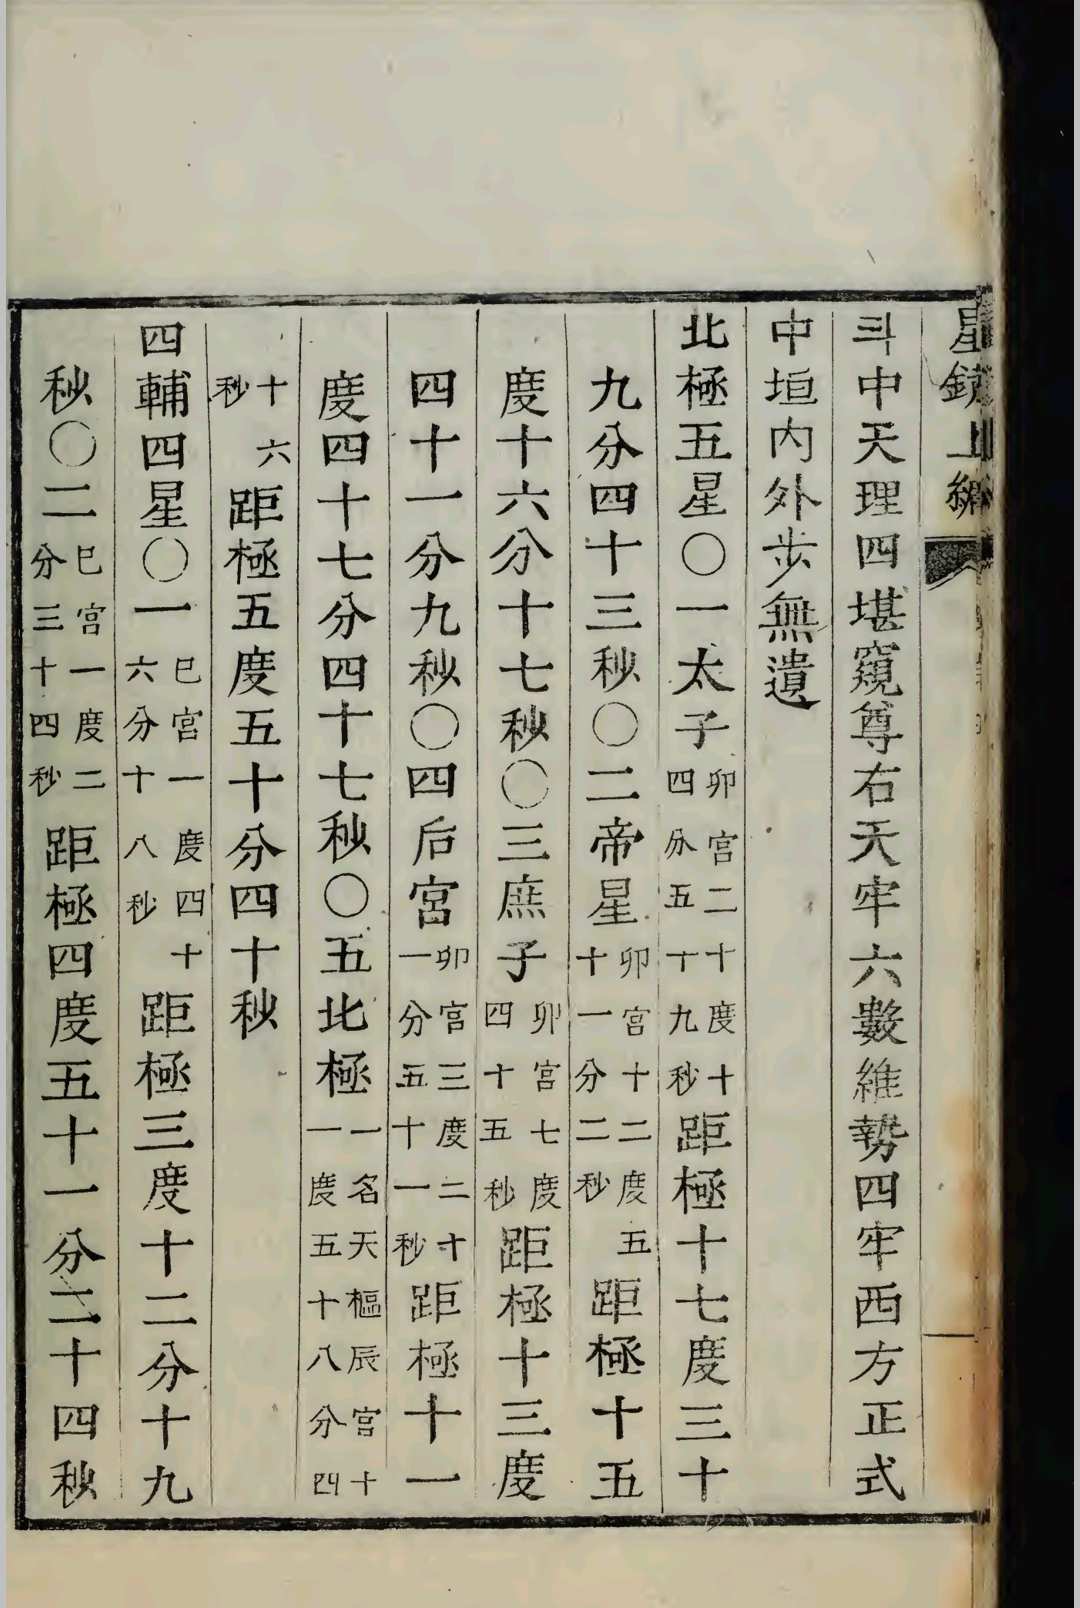 星鏡上編
斗中天理四堪窺尊右天牢六數維勢四牢西方正式
中垣內外步無遺
北極五星〇一太子卯宮二十度十四分五十九秒距極十七度三十
九分四十三秒〇二帝星卯宮十二度五十一分二秒距極十五
度十六分十七秒〇三庶子卯宮七度四十五秒距極十三度
四十一分九秒〇四后宮卯宮三度二十一分五十一秒距極十一
度四十七分四十七秒〇五北極一名天樞辰宮十一度五十八分四
十六秒距極五度五十分四十秒
四輔四星〇一巳宮一度四十六分十八秒距極三度十二分十九
秒〇二巳宮一度二分三十四秒距極四度五十一分二十四秒